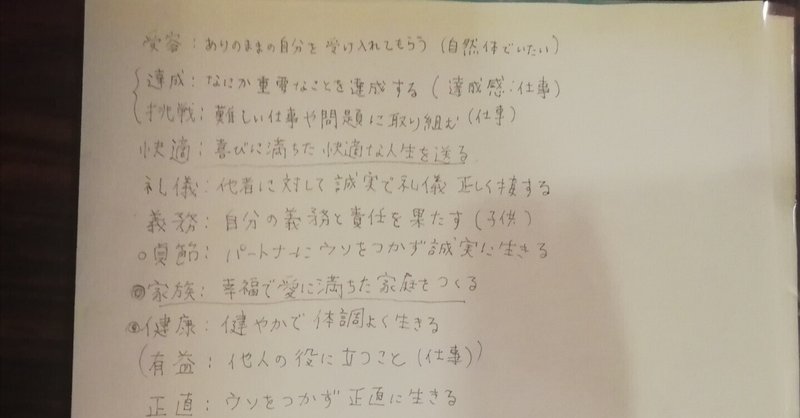 受容：ありのままの自分を受け入れてもらう（自然体でいたい）
達成：なにか重要なことを達成する（達成感：仕事）
挑戦：難しい仕事や問題に取り組む（仕事）
快適：喜びに満ちた快適な人生を送る
礼儀：他者に対して誠実で礼儀正しく接する
義務：自分の義務と責任を果たす（子供）
○貞節：パートナーにウソをつかず誠実に生きる
◎家族：幸福で愛に満ちた家庭をつくる
◎健康：健やかで体調よく生きる
（有益：他人の役に立つこと（仕事））
正直：ウソをつかず正直に生きる